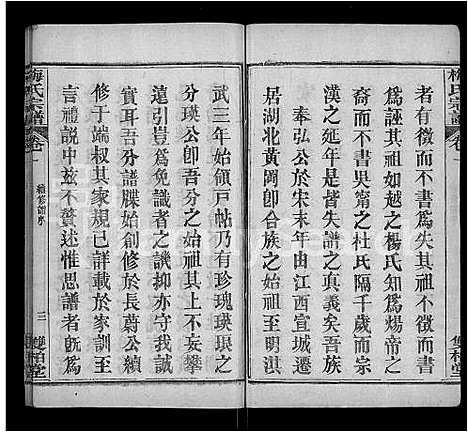 梅氏宗譜
卷一
雙栢堂
者有徵而不書為失其祖不徵而書
為誣其祖如越之楊氏知為煬帝之
裔而不書吳甯之杜氏隔千歲而宗
漢之延年皆失譜之真義矣吾族
始祖奉弘公於宋末年由江西宣城遷
居湖北黃岡卽合族之始祖至明淇
武三年始領戸帖乃有珍瑰瑛琅之
分瑛公卽吾分之始祖其上不妄攀
遠引豈為免識者之譏抑亦守我誠
實耳吾分譜牒始創修於長蔚公續
修于端叔其家規已詳載於家訓至
言禮說中兹不贅述惟思譜者旣為
梅氏宗譜
卷一
續修譜序
三
雙栢堂